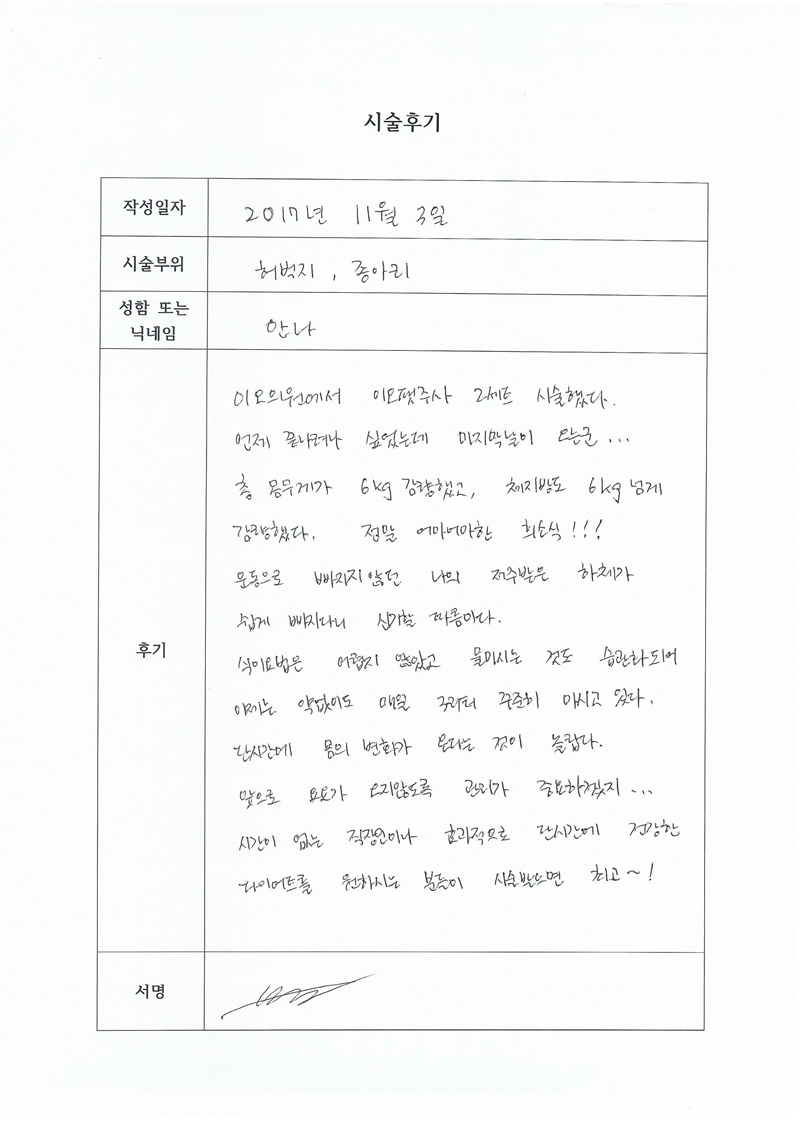 시술후기
작성일자 2017년 11월 3일
시술부위 허벅지, 종아리
성함 또는
닉네임
안나
이오의원에서 이오팻주사 2세트 시술했다.
언제 끝나려나 싶었는데 마지막날이 오는군...
총 몸무게가 6kg 감량했고, 체지방도 6kg 넘게
감량했다. 정말 어마어마한 희소식!!!
운동으로 빠지지않던 나의 저주받은 하체가
쉽게 빠지다니 신기할 따름이다.
후기
식이요법은 어렵지 않았고 물마시는 것도 습관화되어
이제는 약없이도 매일 2리터 꾸준히 마시고 있다.
단시간에 몸의 변화가 온다는 것이 놀랍다.
앞으로 요요가 오지않도록 관리가 중요하겠지...
시간이 없는 직장인이나 효과적으로 단시간에 건강한
다이어트를 원하시는 분들이 시술받으면 최고~!
서명